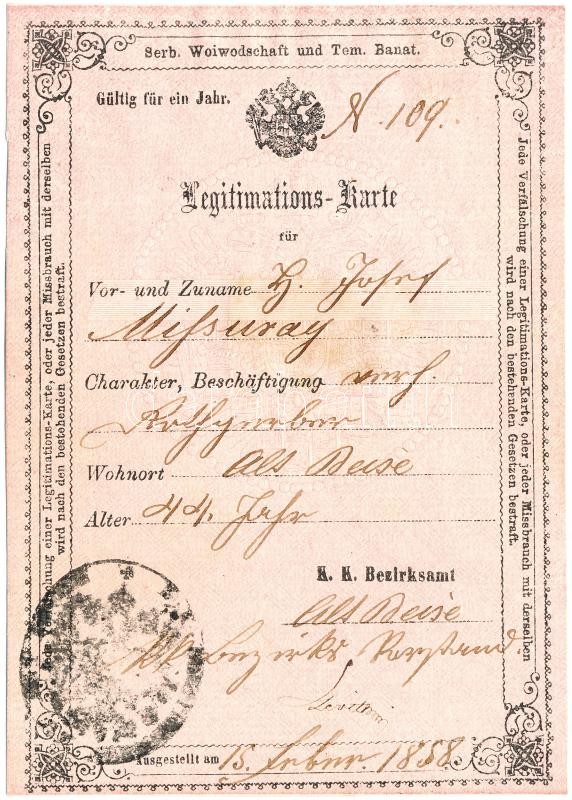 Serb. Woiwodschaft und Tem. Banat.
Gültig für ein Jahr.
N. 109.
Legitimations-Karte
für
Vor- und Zuname H. Josef
Missuray
Charakter, Beschäftigung verh.
Rothgerber
Wohnort Alt Becse
Alter 44 Jahr
K. K. Bezirksamt
Alt Becse
Bezirks Vorstand.
Ausgestellt am 15 Feber 1858
Jede Verfälschung einer Legitimations-Karte, oder jeder Missbrauch mit derselben
wird nach den bestehenden Gesetzen bestraft.
Jede Verfälschung einer Legitimations-Karte, oder jeder Missbrauch mit derselben
wird nach den bestehenden Gesetzen bestraft.